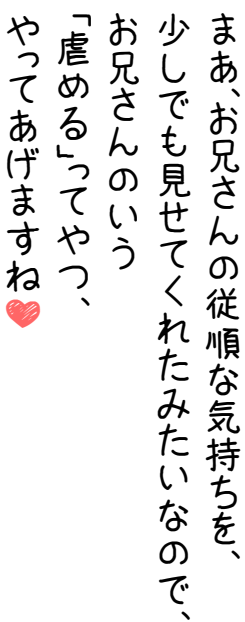 まあ、お兄さんの従順な気持ちを、
少しでも見せてくれたみたいなので、
お兄さんのいう
「虐める」ってやつ、
やってあげますね❤